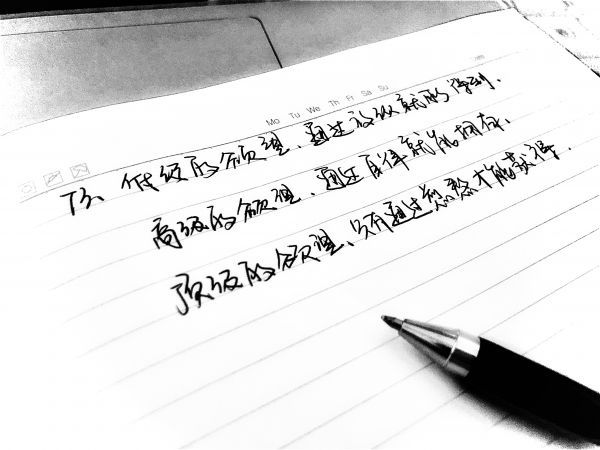 Mo Tu We Th Fr Sa Su
T3、低级的欲望、通过放纵就能得到.
高级的欲望、通过自律就能拥有.
顶级的欲望、只有通过煎熬才能获得.